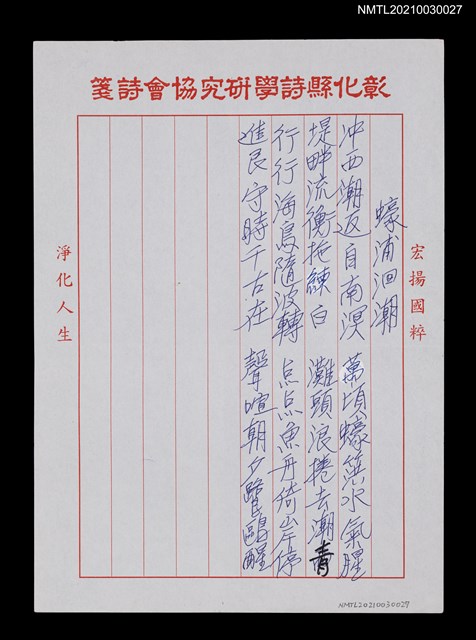 NMTL20210030027
彰化縣詩學研究協會詩箋
宏揚國粹
蠔浦洄潮
冲西潮返自南溟 萬頃蠔篊水氣腥
堤畔流衡拖練白 灘頭浪捲去潮青
行行海鳥隨波轉 点点魚舟倚岸停
進艮守時千古在 聲喧朝夕醒
淨化人生
NMTL20210030027